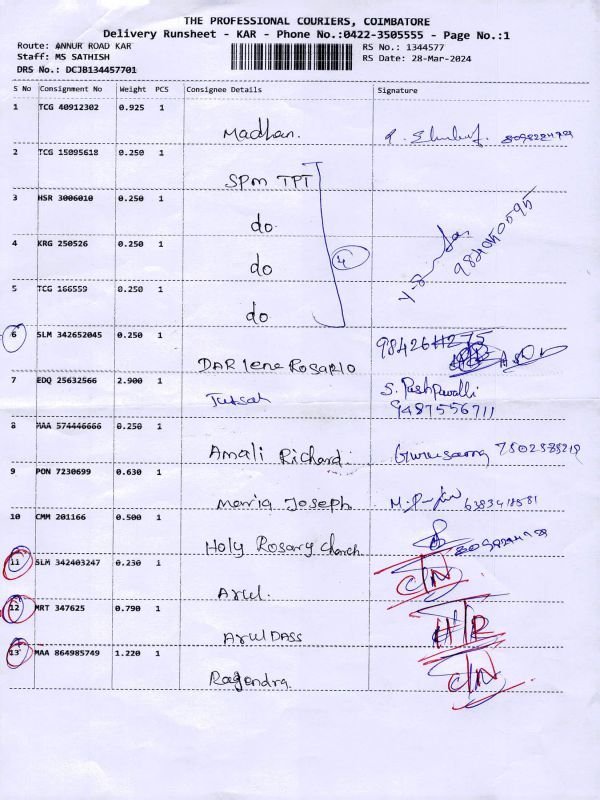 THE PROFESSIONAL COURIERS, COIMBATORE
Delivery Runsheet - KAR - Phone No.:0422-3505555 - Page No.:1
Route: ANNUR ROAD KAR
Staff: MS SATHISH
DRS No.: DCJB134457701
RS No.: 1344577
RS Date: 28-Mar-2024
S No Consignment No Weight PCS Consignee Details Signature
1 TCG 40912302 0.925 1
Madhan.
2 TCG 15095618 0.250 1
SPM TPT
3 HSR 3006010 0.250 1
do
4 KRG 250526 0.250 1
do
4
5 TCG 166559 0.250 1
do
9840450595
6 SLM 342652045 0.250 1
DARlene Rosario
7 EDQ 25632566 2.900 1
S. Pushpavalli
9487556711
8 MAA 574446666 0.250 1
Amali Richard.
9 PON 7230699 0.630 1
Maria Joseph
10 CMM 201166 0.500 1
Holy Rosary Church
11 SLM 342403247 0.230 1
Arul.
C/N
12 MRT 347625 0.790 1
Arul DASS
13 MAA 864985749 1.220 1
Ragendra.
C/N